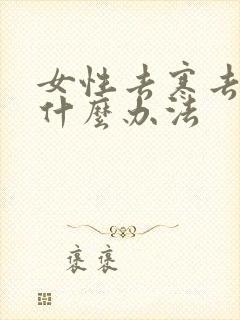 女性去寒去
什麼办法
褒褒